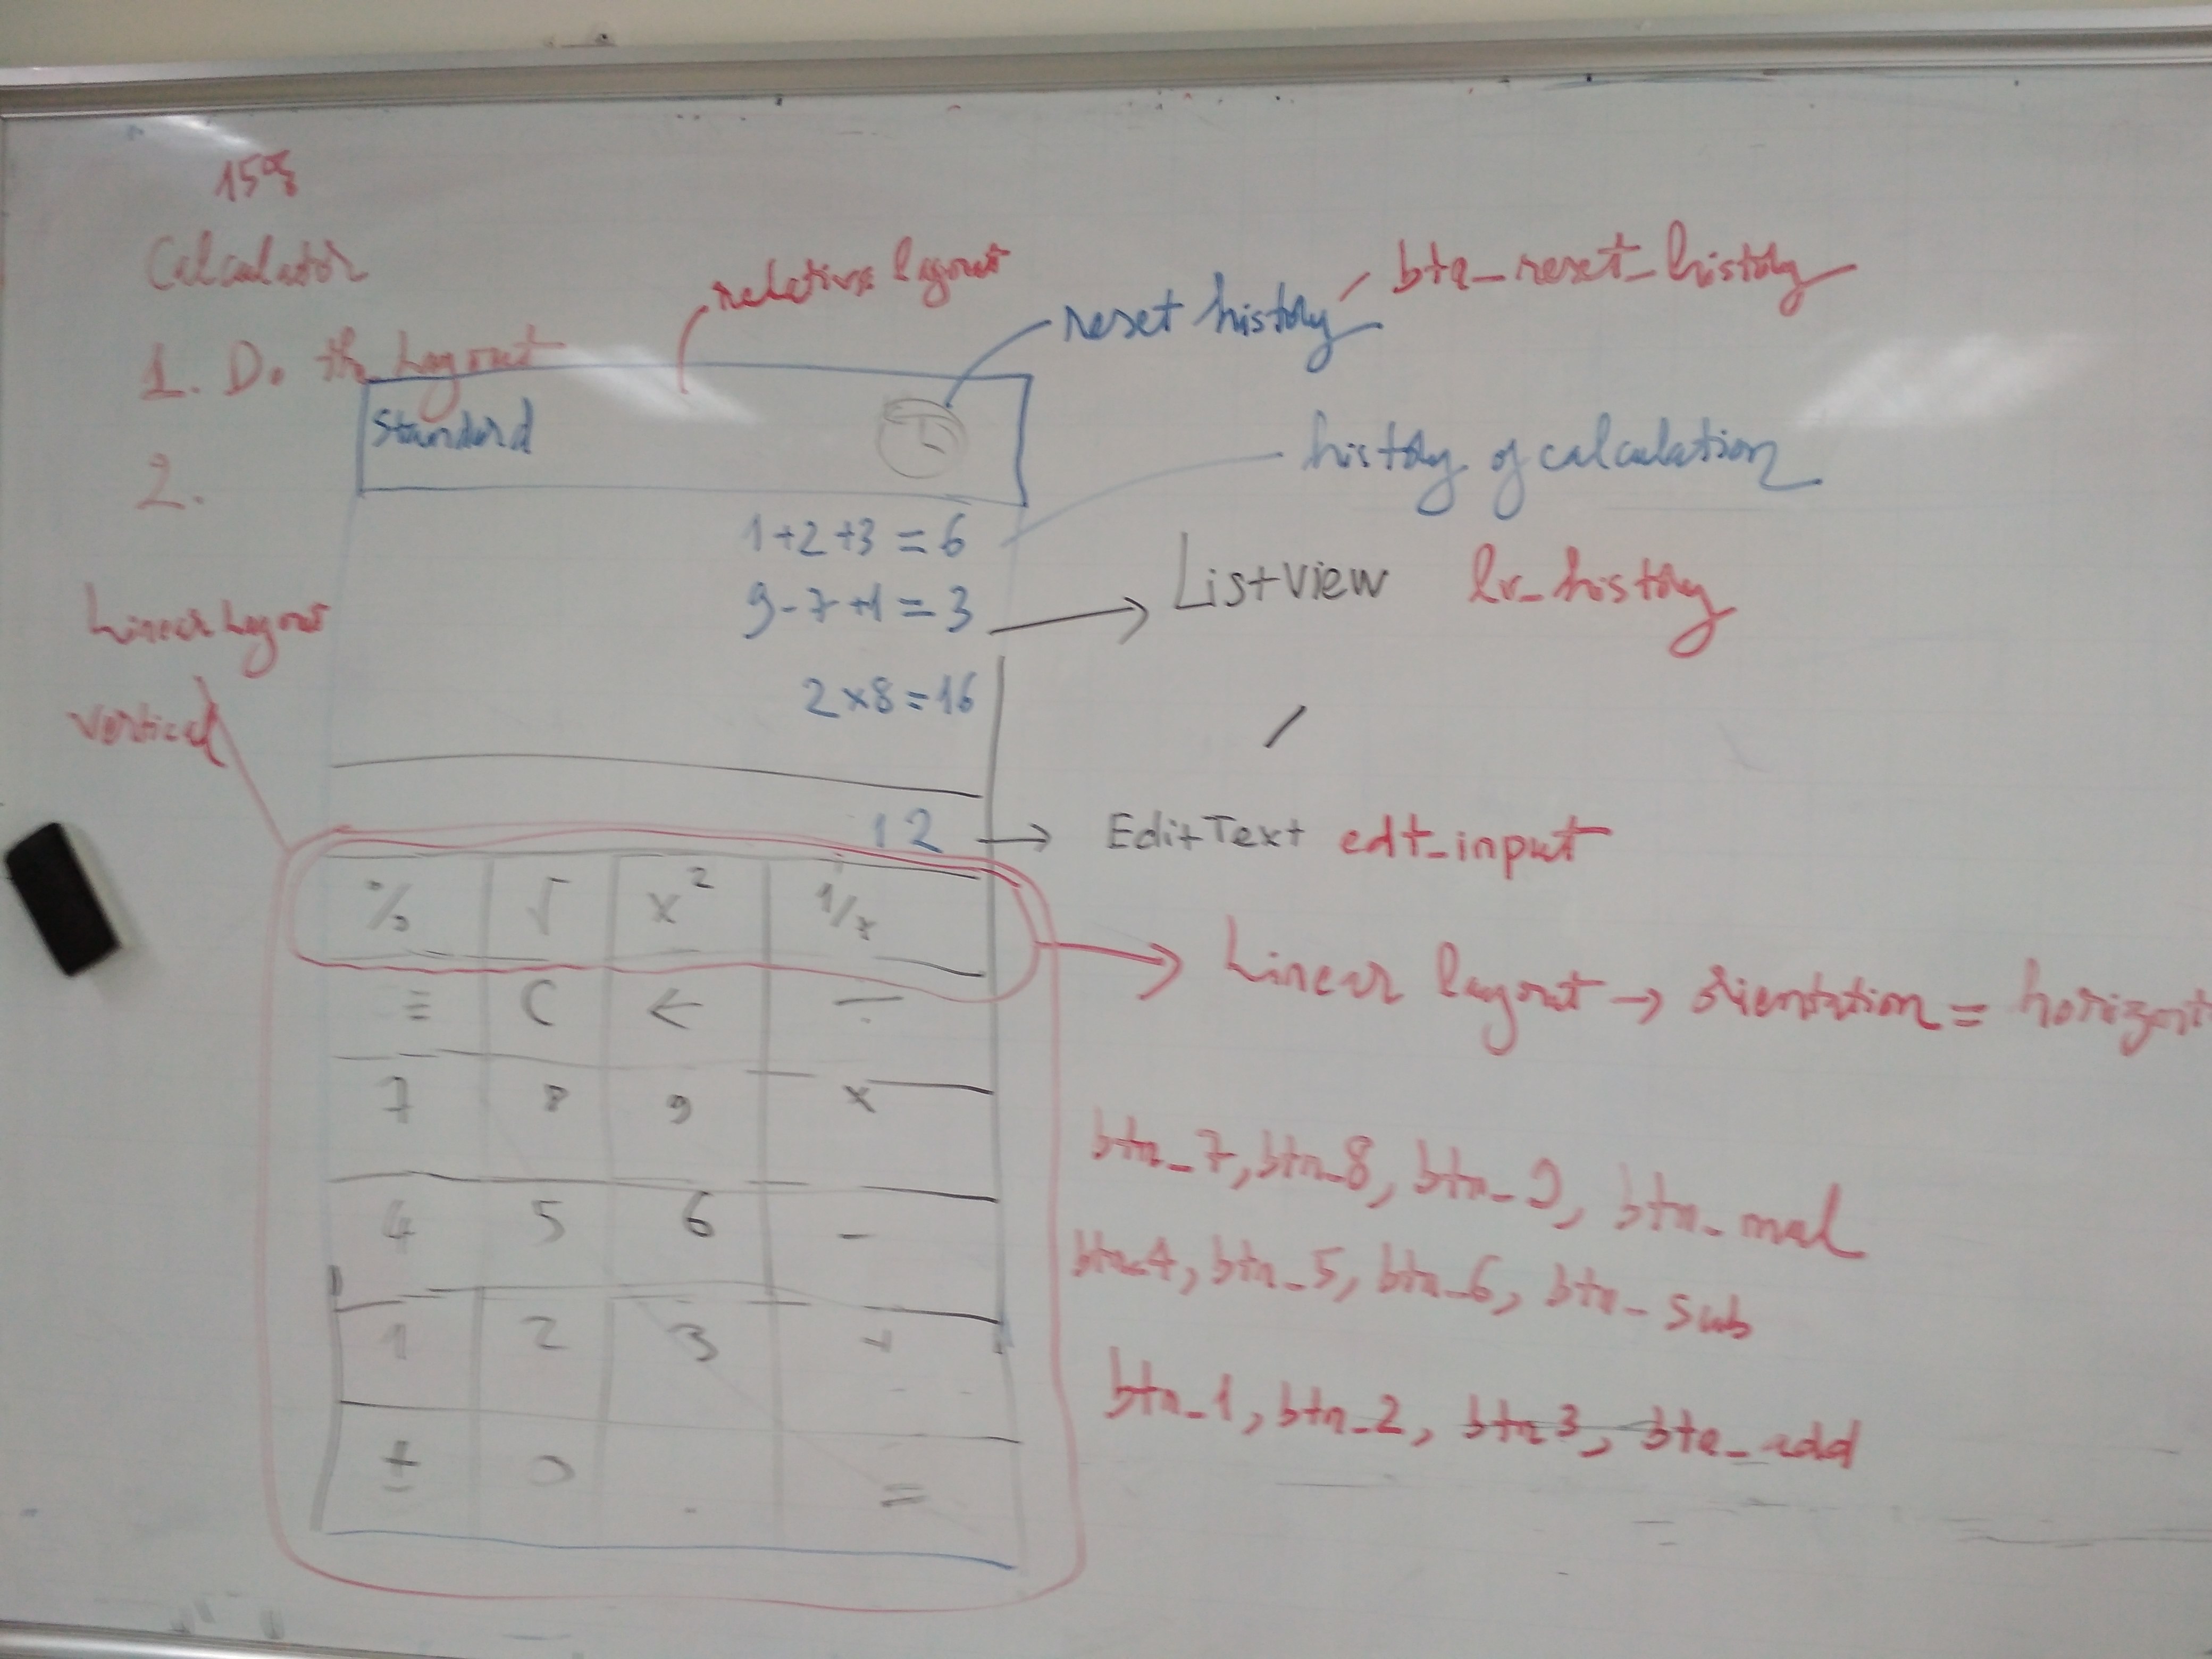 15%
Calculator
1. Do the Layout
2.
relative layout
reset history
btn_reset_history
Standard
history of calculation
1+2+3 = 6
9-7+1 = 3
2×8=16
ListView lv_history
Linear Layout
vertical
12
EditText edt_input
% √ x² 1/x
C ← ÷
Linear layout → orientation = horizont
7 8 9 ×
4 5 6 -
1 2 3 +
± 0 . =
btn_7, btn_8, btn_9, btn_mul
btn_4, btn_5, btn_6, btn_sub
btn_1, btn_2, btn 3, btn_add